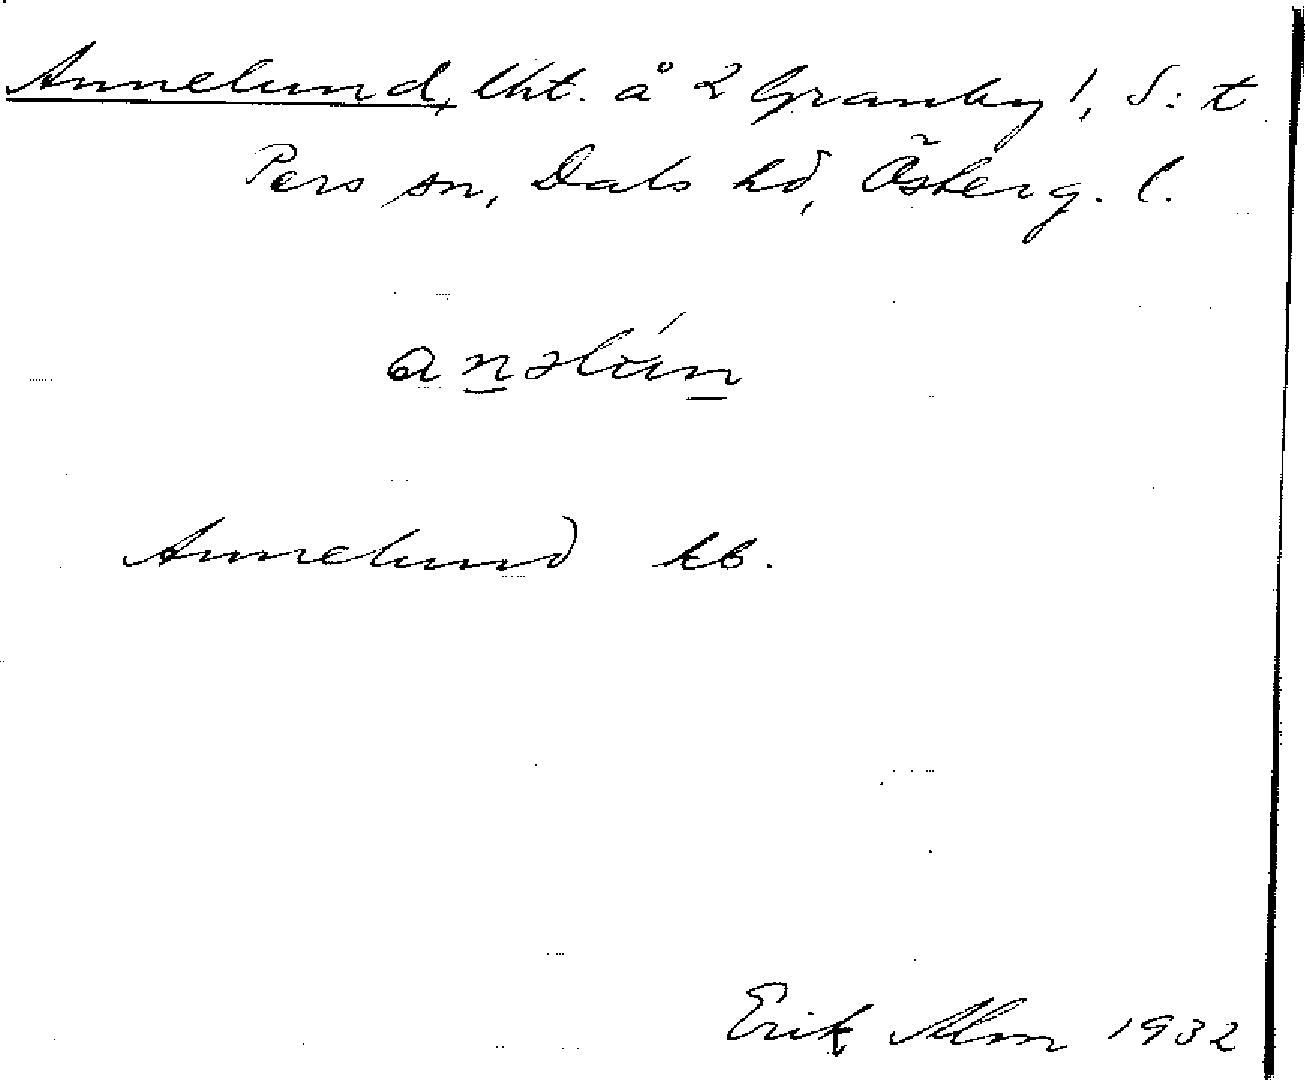 Annelund, lht. å 2 Granby 1, S:t
Pers sn, Dals hd, Österg. l.
anəlún
Annelund kb.
Erik Alm 1932